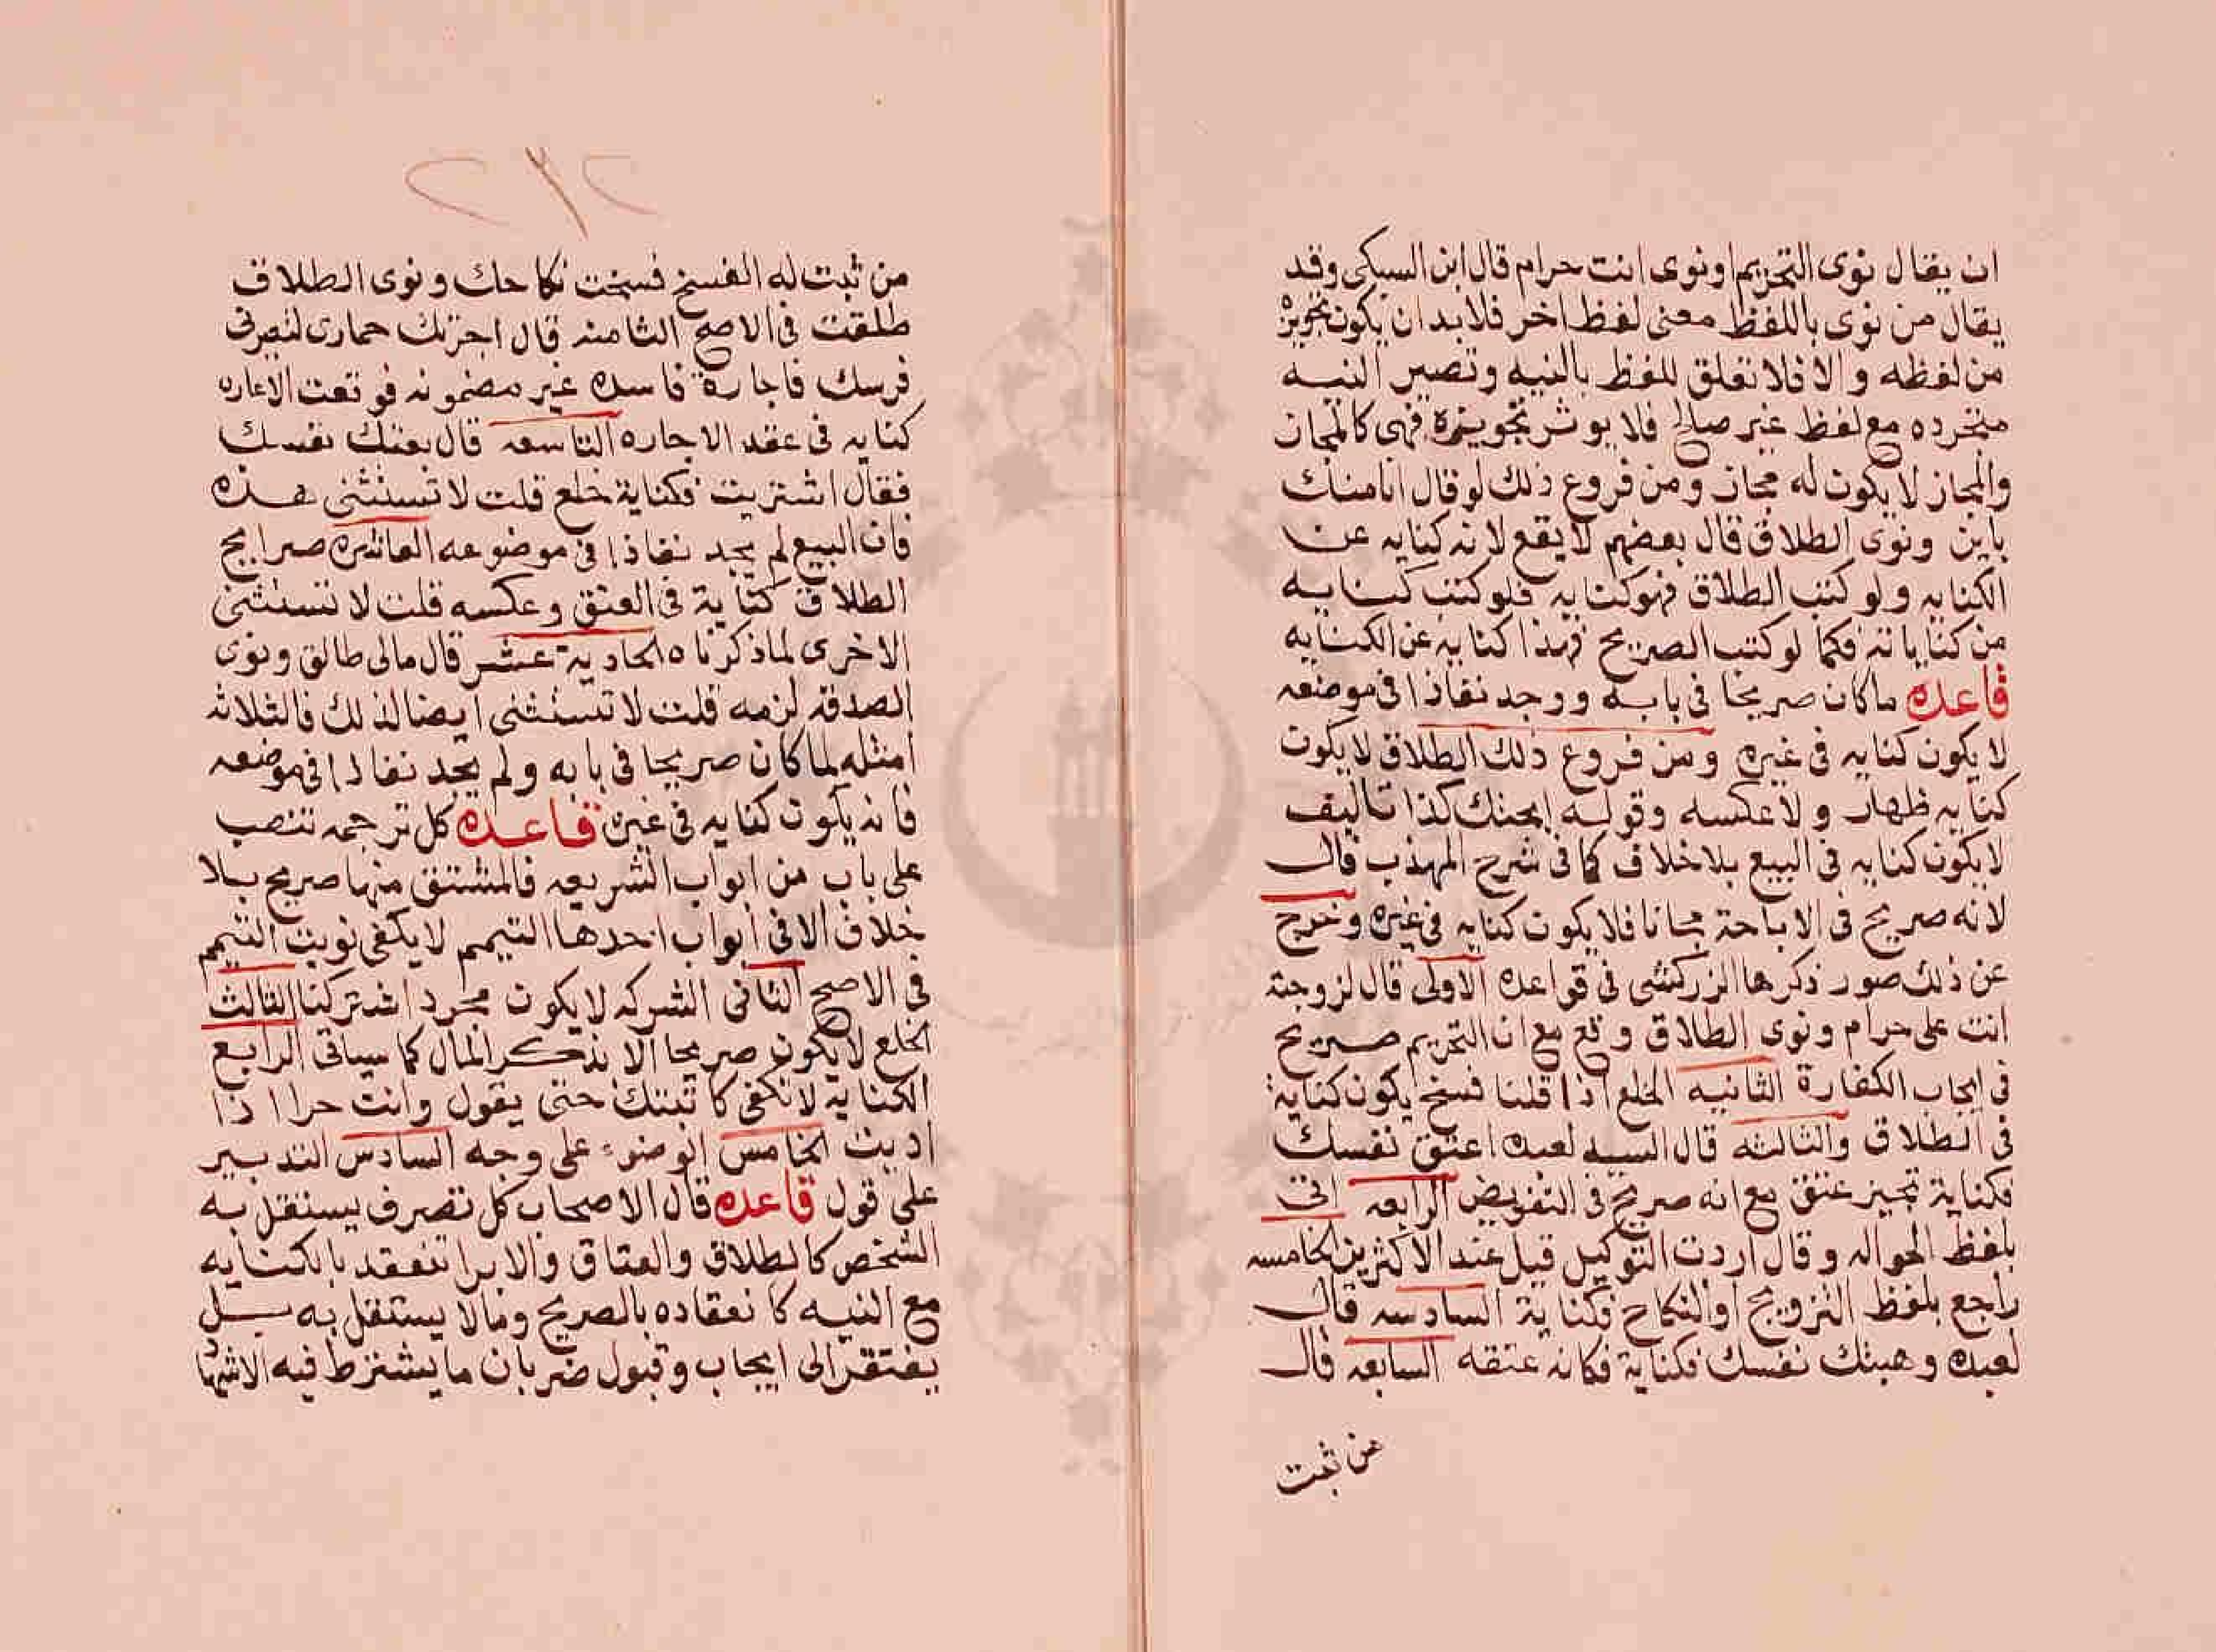 ان يقال نوى التحريم او نوى انت حرام قال ابن السبكى وقد
يقال من نوى باللفظ معنى لفظ اخر فلابد ان يكون تجوز
من لفظه والا فلا تعلق للفظ بالنيه وتصير النيه
متجرده مع لفظ غير صالح فلا يوثر تجويزه فهى كالمجاز
والمجاز لا يكون له مجاز ومن فروع ذلك لو قال انا منك
باين ونوى الطلاق قال بعضهم لا يقع لانه كنايه عن
الكنايه ولو كتب الطلاق فهو كنايه فلو كتب كنايه
من كناياته فكما لو كتب الصريح فهذا كنايه عن الكنايه
قاعده ماكان صريحا فى بابه ووجد نفاذا فى موضعه
لا يكون كنايه فى غيره ومن فروع ذلك الطلاق لا يكون
كنايه ظهار ولا عكسه وقوله ابحتك كذا تاليف
لا يكون كنايه فى البيع بلا خلاف كما فى شرح المهذب قال
لانه صريح فى الاباحة مجانا فلا يكون كنايه فى غيره وخرج
عن ذلك صور ذكرها الزركشى فى قواعده الاولى قال لزوجته
انت على حرام ونوى الطلاق وقع مع ان التحريم صريح
فى ايجاب الكفارة الثانيه الخلع اذا قلنا فسخ يكون كناية
فى الطلاق والثالثه قال السيد لعبده اعتق نفسك
فكناية تنجيز عتق مع انه صريح فى التفويض الرابعه اتى
بلفظ الحواله وقال اردت التوكيل قبل عند الاكثرين الخامسه
راجع بلفظ التزويج او النكاح فكناية السادسه قال
لعبده وهبتك نفسك فكناية فكانه عتقه السابعه قال
من ثبت
٢٩٢
من ثبت له الفسخ فسخت نكاحك ونوى الطلاق
طلقت فى الاصح الثامنه قال اجرتك حمارى لتعيرنى
فرسك فاجارة فاسده غير مضمونه فوقعت الاعاره
كنايه فى عقد الاجاره التاسعه قال بعتك نفسك
فقال اشتريت فكناية خلع قلت لا تستثنى هذه
فان البيع لم يجد نفاذا فى موضوعه العاشره صرايح
الطلاق كناية فى العتق وعكسه قلت لا تستثنى
الاخرى لما ذكرناه الحادية عشر قال مالى طالق ونوى
الصدقه لزمه قلت لا تستثنى ايضا لذلك فالثلاثه
امثله لما كان صريحا فى بابه ولم يجد نفاذا فى موضعه
فانه يكون كنايه فى غيره قاعده كل ترجمه تنصب
على باب من ابواب الشريعه فالمشتق منها صريح بلا
خلاف الا فى ابواب احدها التيمم لا يكفى نويت التيمم
فى الاصح الثانى الشركه لا يكون مجرد اشتركنا الثالث
الخلع لا يكون صريحا الا بذكر المال كما سياتى الرابع
الكتاية لا تكفى كاتبتك حتى يقول وانت حر اذا
اديت الخامس الوضوء على وجه السادس التدبير
على قول قاعده قال الاصحاب كل تصرف يستقل به
الشخص كالطلاق والعتاق والابرا تنعقد بالكنايه
مع النيه كانعقاده بالصريح ومالا يستقل به بل
يفتقر الى ايجاب وقبول ضربان ما يشترط فيه الاشهاد